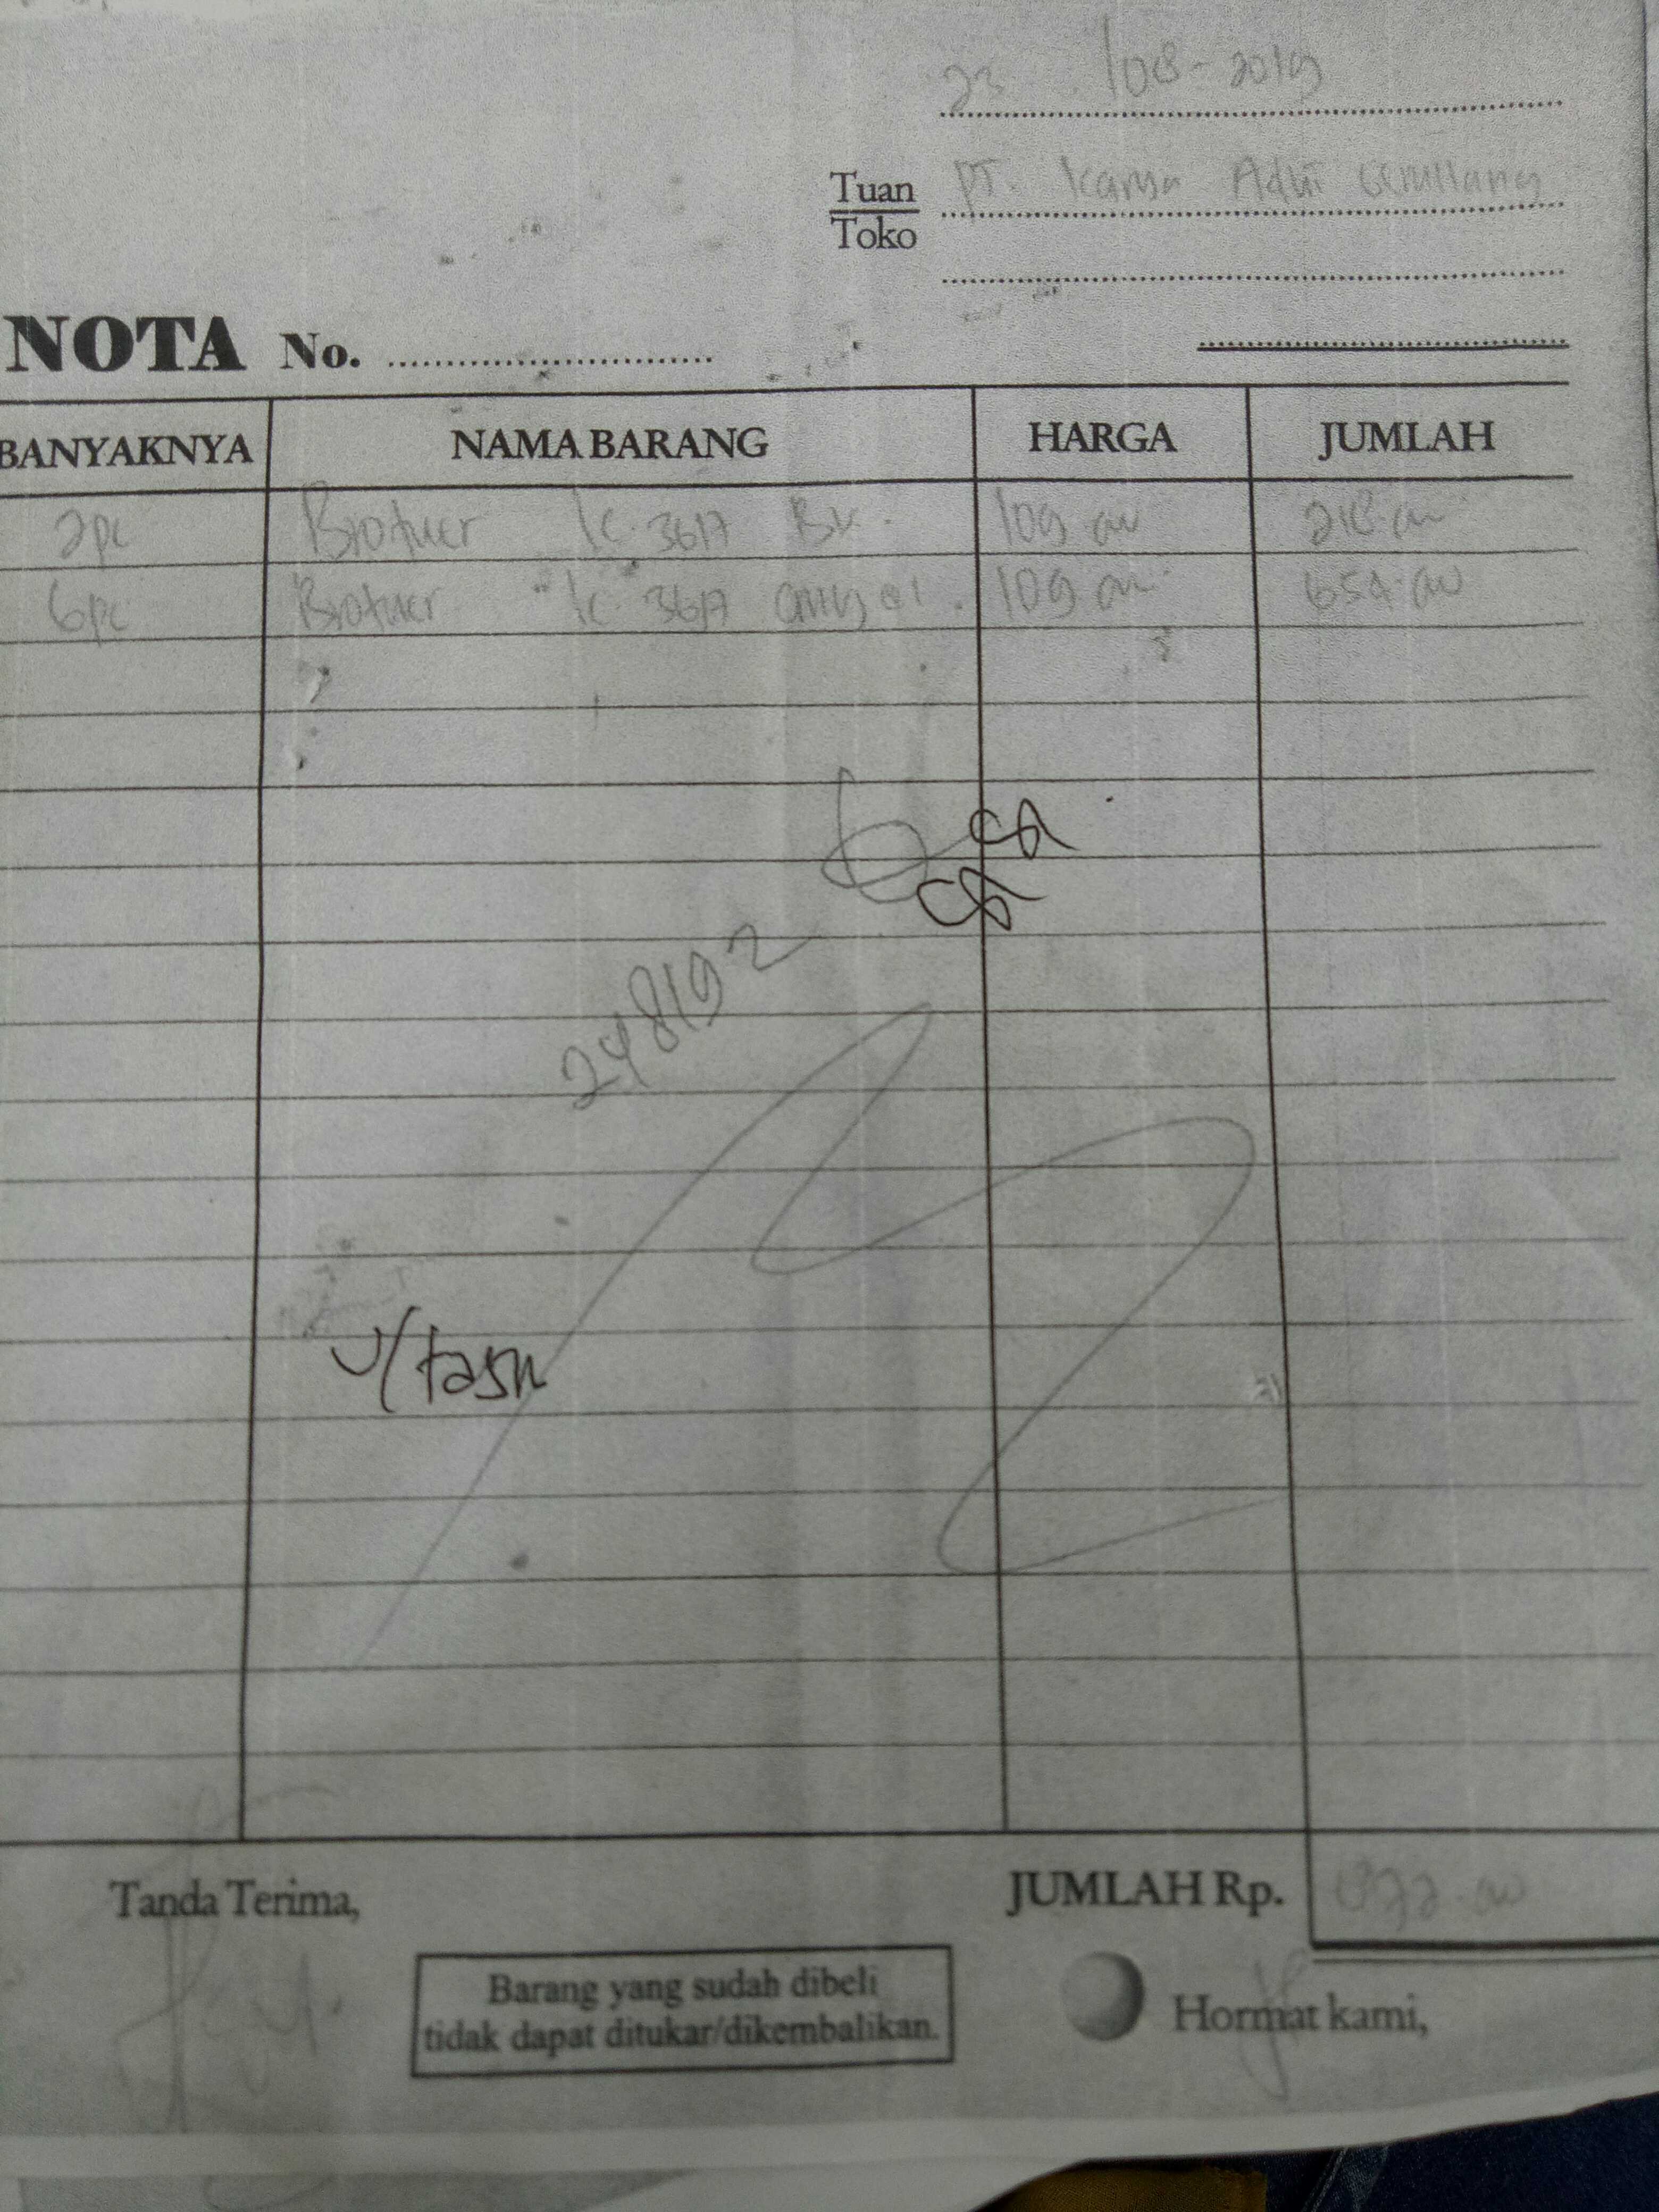 23 /08-2019
Tuan PT. Karya Adhi
Toko
NOTA No.
BANYAKNYA NAMA BARANG HARGA JUMLAH
2pc Brother lc. 3617 BK. 109.00 218.00
6pc Brother lc. 3617 109.00 654.00
248192
u/tasn
Tanda Terima,
JUMLAH Rp. 872.00
Barang yang sudah dibeli
tidak dapat ditukar/dikembalikan.
Hormat kami,